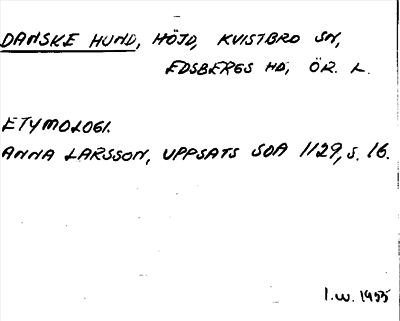 DANSKE HUND, HÖJD, KVISTBRO SN,
EDSBERGS HD, ÖR. L.
ETYMOLOGI.
ANNA LARSSON, UPPSATS SOA 1129, S. 16.
I.W. 1955